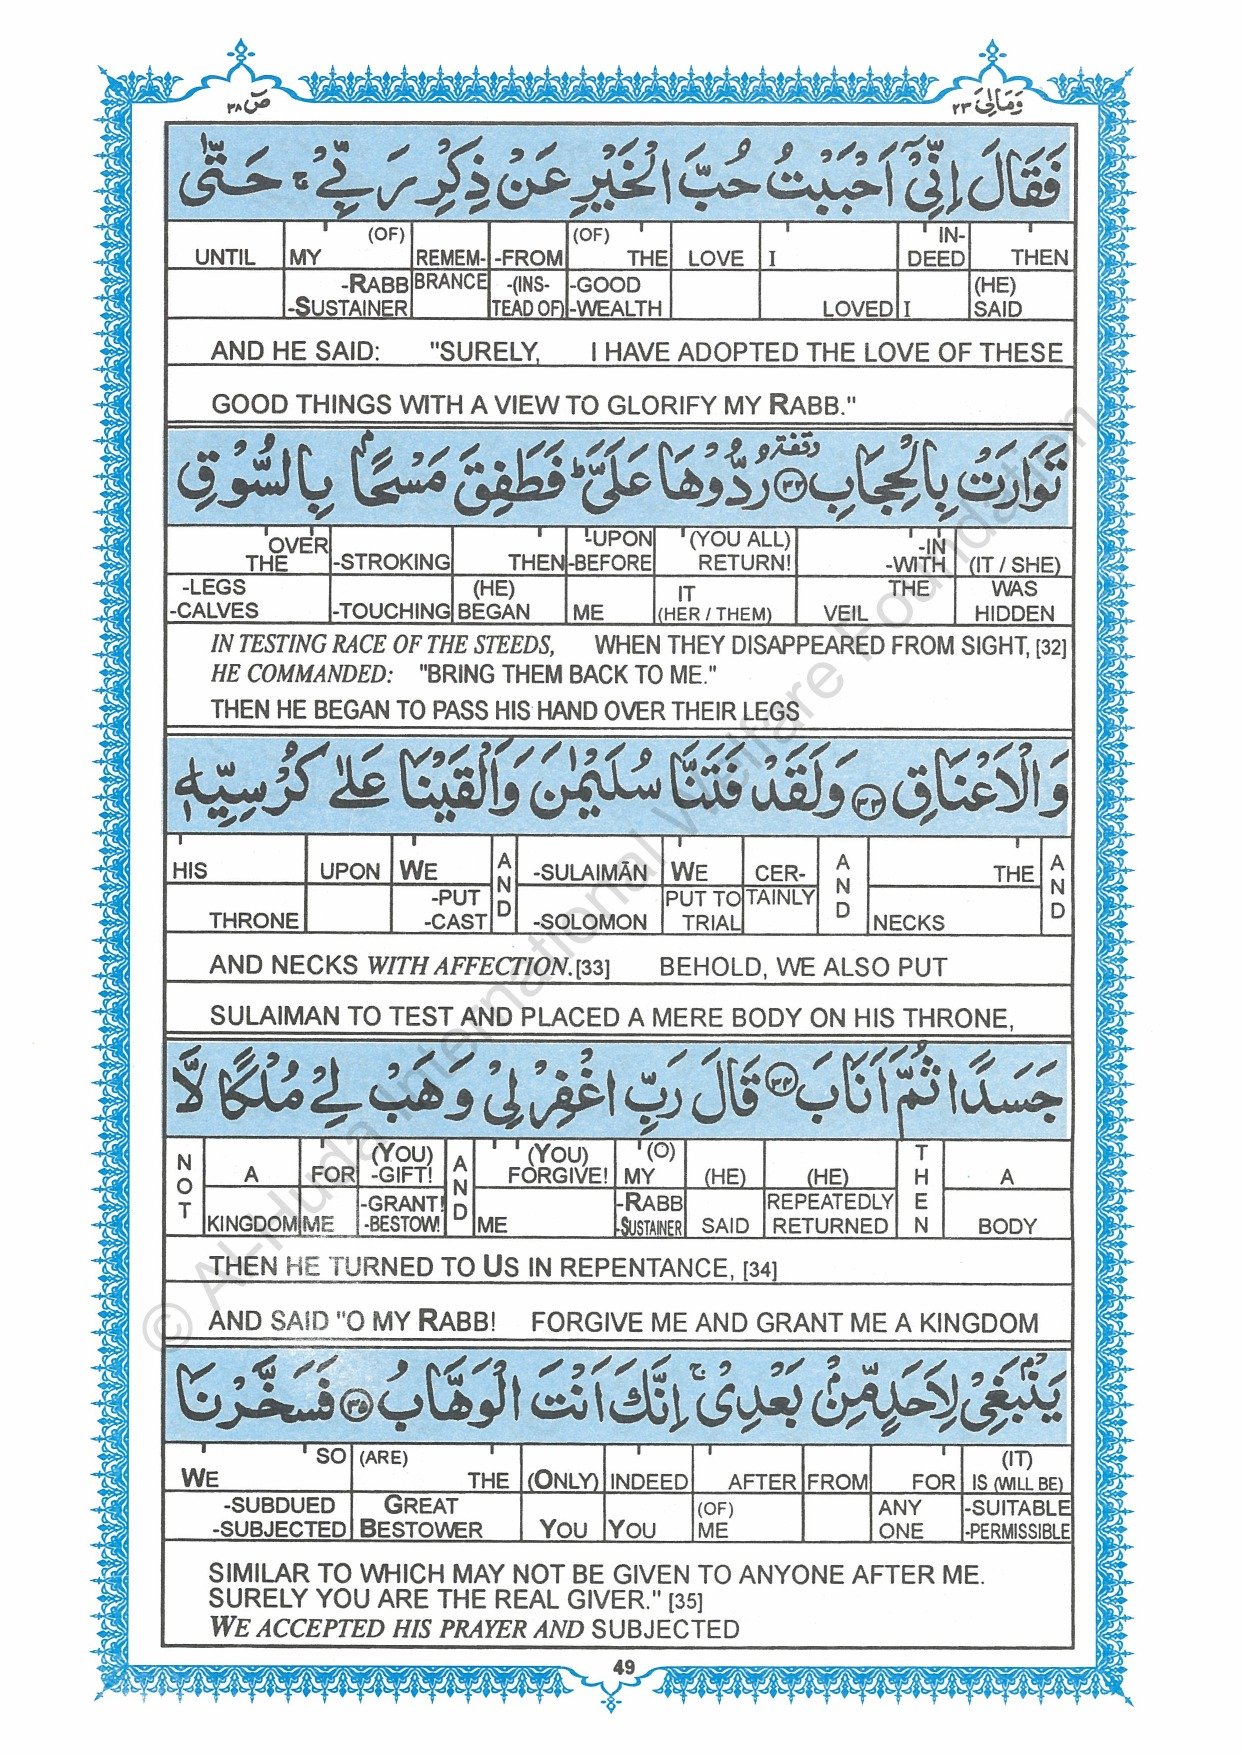 ص ٣٨
وَمَالِيَ ٢٣
فَقَالَ اِنِّیْۤ اَحْبَبْتُ حُبَّ الْخَیْرِ عَنْ ذِكْرِ رَبِّیْ ۚ حَتّٰی
UNTIL MY (OF) REMEM- -FROM (OF) THE LOVE I IN- DEED THEN
-RABB -SUSTAINER BRANCE -(INS- TEAD OF) -GOOD -WEALTH LOVED I (HE) SAID
AND HE SAID: "SURELY, I HAVE ADOPTED THE LOVE OF THESE
GOOD THINGS WITH A VIEW TO GLORIFY MY RABB."
تَوَارَتْ بِالْحِجَابِ ۝٣٢ وقفة رُدُّوْهَا عَلَیَّ ؕ فَطَفِقَ مَسْحًۢا بِالسُّوْقِ
OVER THE -STROKING THEN -UPON -BEFORE (YOU ALL) RETURN! -IN -WITH (IT / SHE)
-LEGS -CALVES -TOUCHING (HE) BEGAN ME IT (HER / THEM) THE VEIL WAS HIDDEN
IN TESTING RACE OF THE STEEDS, WHEN THEY DISAPPEARED FROM SIGHT, [32]
HE COMMANDED: "BRING THEM BACK TO ME."
THEN HE BEGAN TO PASS HIS HAND OVER THEIR LEGS
وَالْاَعْنَاقِ ۝٣٣ وَلَقَدْ فَتَنَّا سُلَیْمٰنَ وَاَلْقَیْنَا عَلٰی كُرْسِیِّهٖ
HIS UPON WE AND -SULAIMĀN WE CER- AND THE AND
THRONE -PUT -CAST -SOLOMON PUT TO TRIAL TAINLY NECKS
AND NECKS WITH AFFECTION.[33] BEHOLD, WE ALSO PUT
SULAIMAN TO TEST AND PLACED A MERE BODY ON HIS THRONE,
جَسَدًا ثُمَّ اَنَابَ ۝٣٤ قَالَ رَبِّ اغْفِرْ لِیْ وَهَبْ لِیْ مُلْكًا لَّا
NOT A FOR (YOU) -GIFT! AND (YOU) FORGIVE! (O) MY (HE) (HE) THEN A
KINGDOM ME -GRANT! -BESTOW! ME -RABB -SUSTAINER SAID REPEATEDLY RETURNED BODY
THEN HE TURNED TO US IN REPENTANCE, [34]
AND SAID "O MY RABB! FORGIVE ME AND GRANT ME A KINGDOM
یَنْۢبَغِیْ لِاَحَدٍ مِّنْۢ بَعْدِیْ ۚ اِنَّكَ اَنْتَ الْوَهَّابُ ۝٣٥ فَسَخَّرْنَا
WE SO (ARE) THE (ONLY) INDEED AFTER FROM FOR (IT) IS (WILL BE)
-SUBDUED -SUBJECTED GREAT BESTOWER YOU YOU (OF) ME ANY ONE -SUITABLE -PERMISSIBLE
SIMILAR TO WHICH MAY NOT BE GIVEN TO ANYONE AFTER ME.
SURELY YOU ARE THE REAL GIVER." [35]
WE ACCEPTED HIS PRAYER AND SUBJECTED
49
© Al-Huda International Welfare Foundation